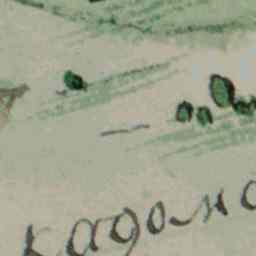 кадомс